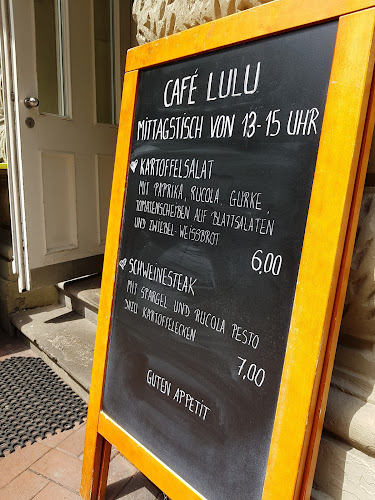 CAFÉ LULU
MITTAGSTISCH VON 13-15 UHR
KARTOFFELSALAT
MIT PAPRIKA, RUCOLA, GURKE,
TOMATENSCHEIBEN AUF BLATTSALATEN
UND ZWIEBEL-WEISSBROT
6,00
SCHWEINESTEAK
MIT SPARGEL UND RUCOLA PESTO
DAZU KARTOFFELECKEN
7,00
GUTEN APPETIT